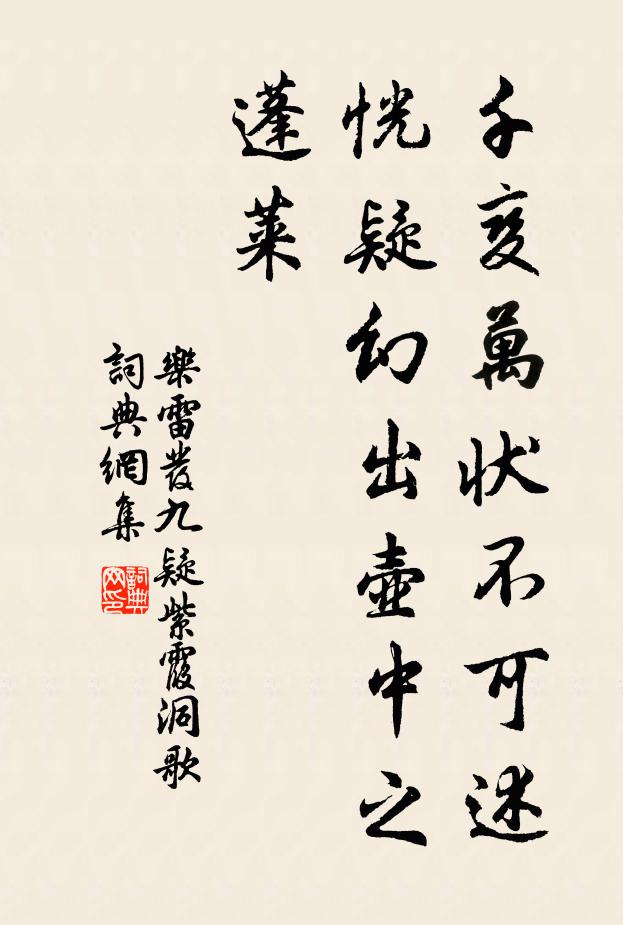 千变萬状不可述
恍疑幻出壺中之
蓬莱
樂雷發九疑紫霞洞歌
詞典網集
詞典網印